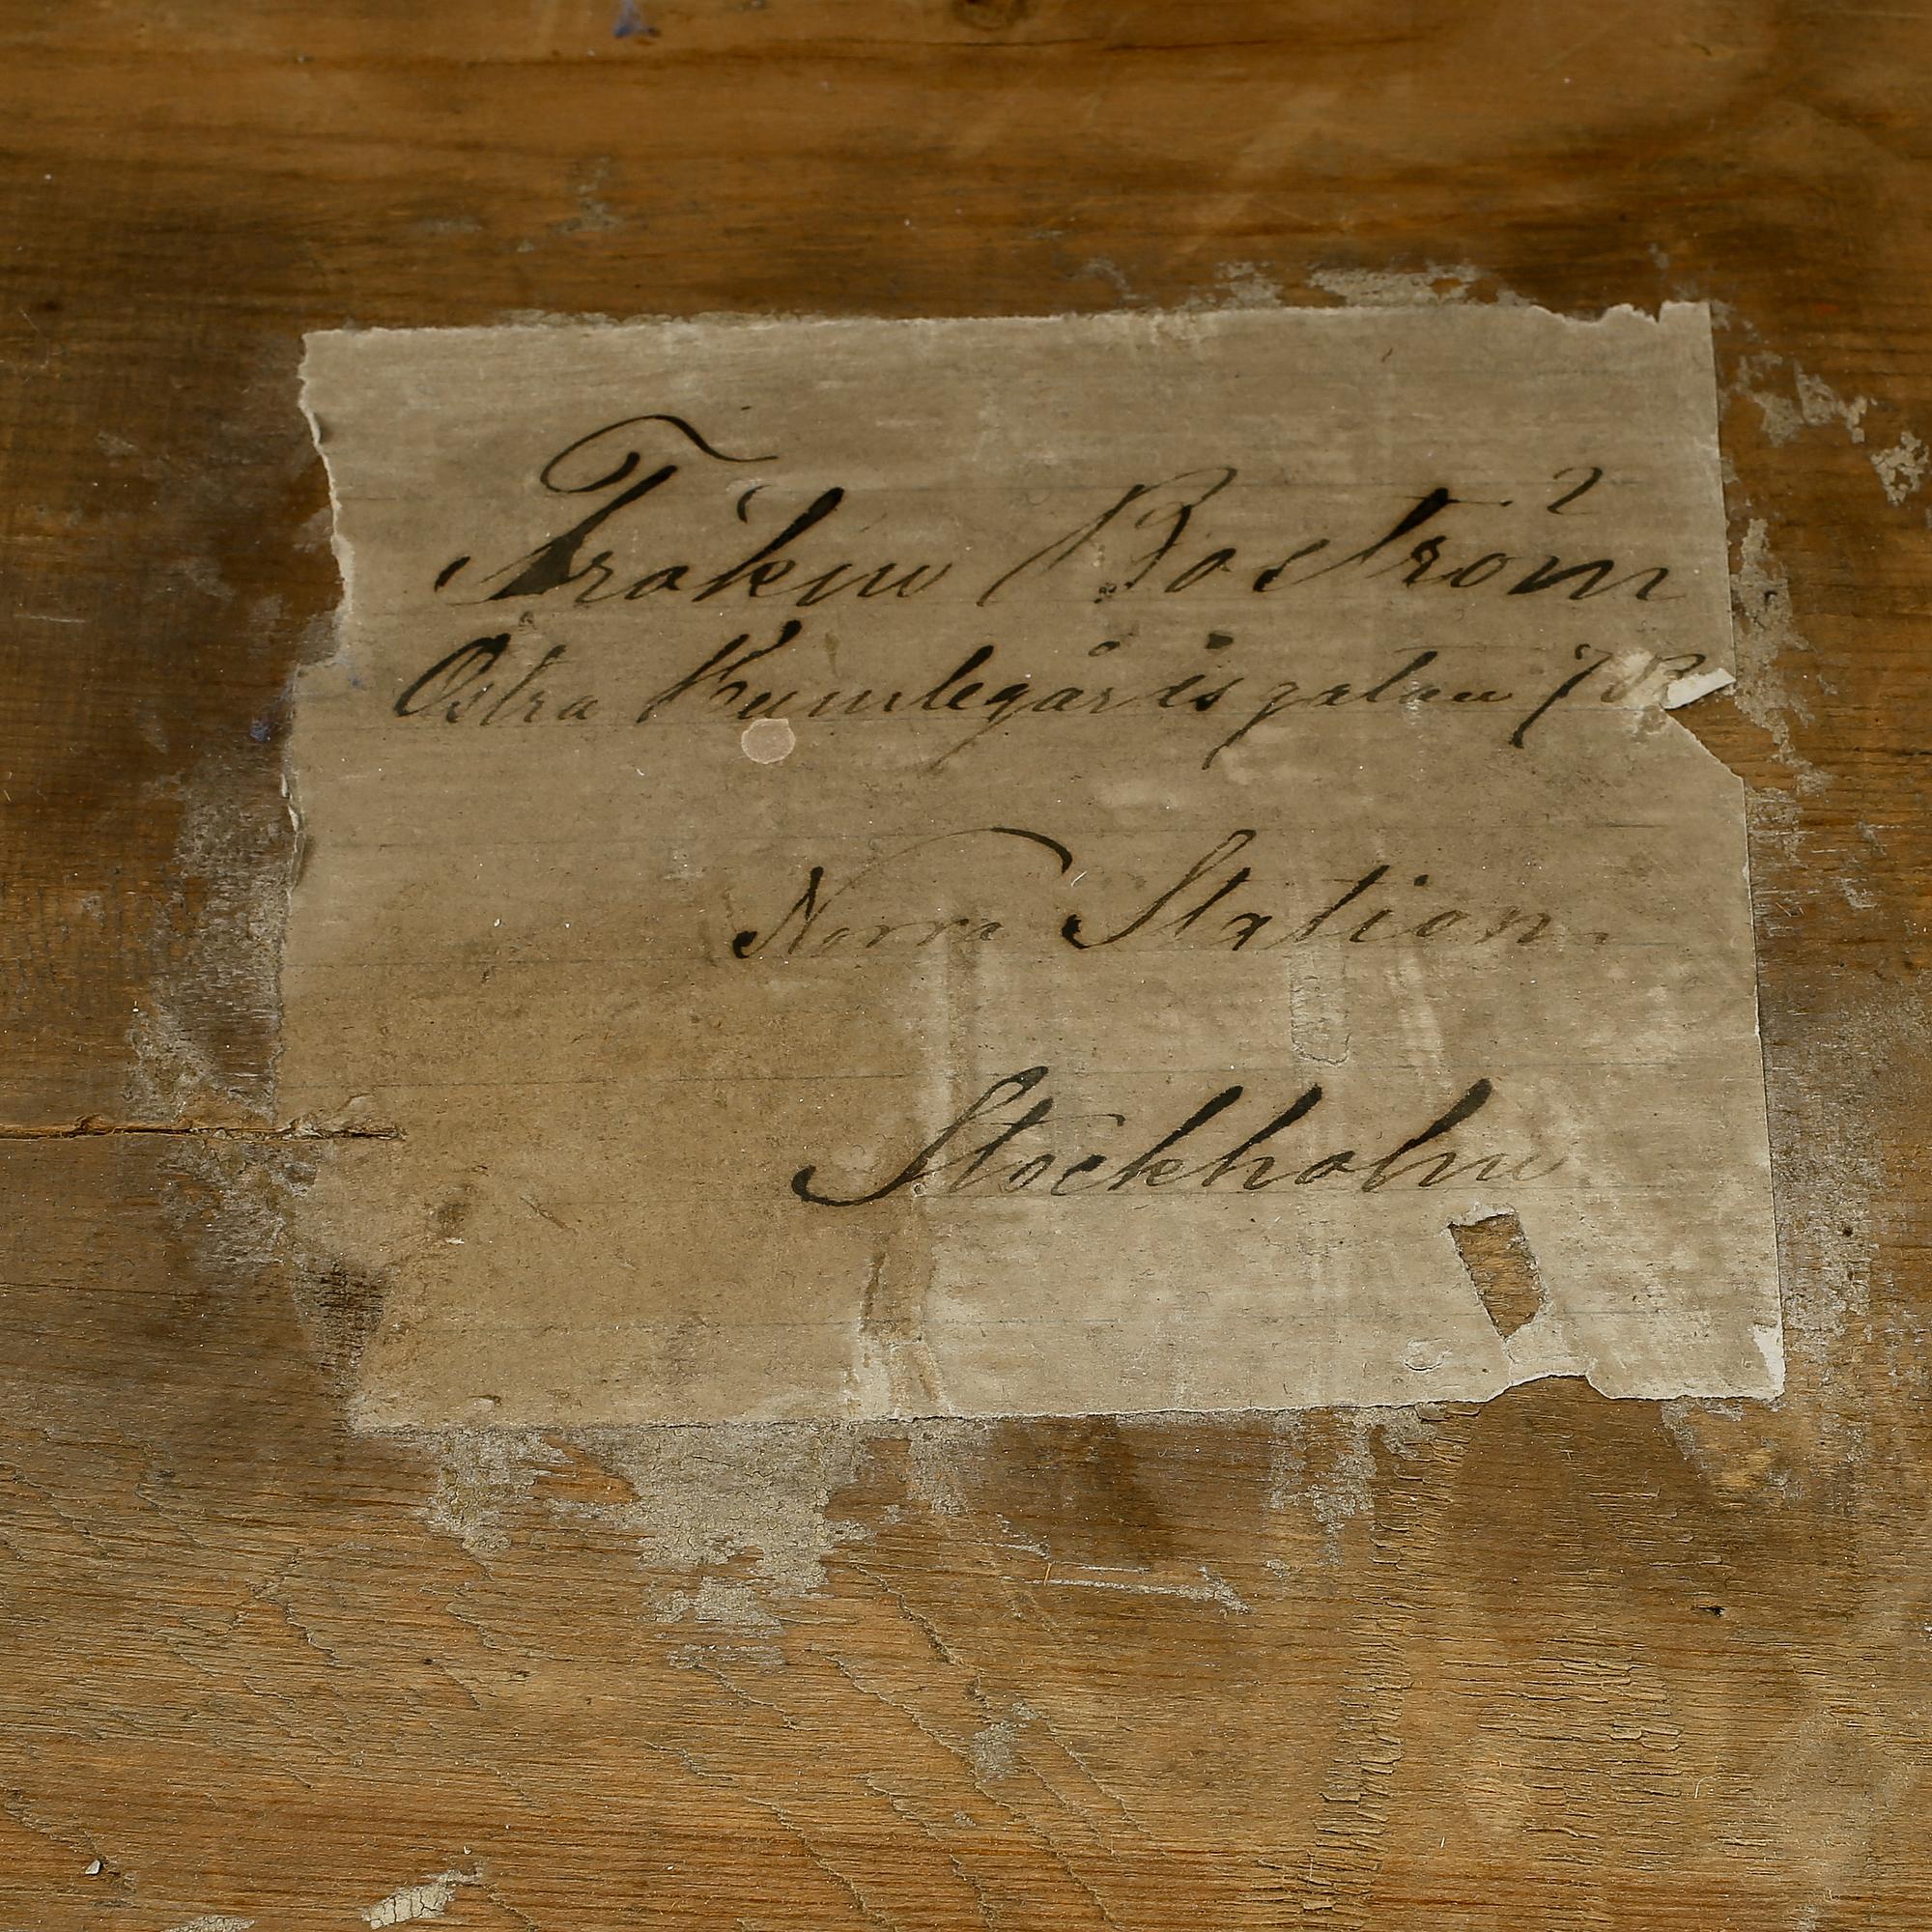 Fröken Boström
Östra Humlegårdsgatan
Norra Station.
Stockholm